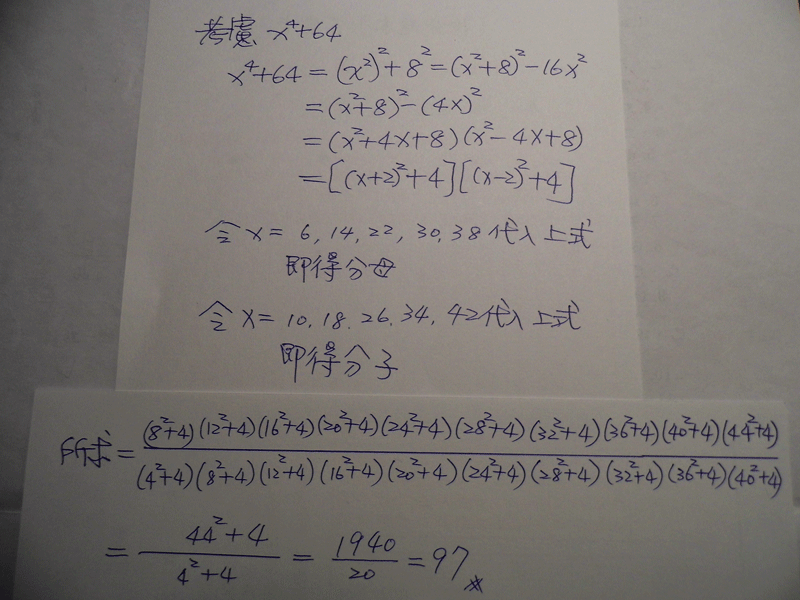 考慮 x⁴+64
x⁴+64 = (x²)²+8² = (x²+8)²-16x²
= (x²+8)²-(4x)²
= (x²+4x+8)(x²-4x+8)
= [(x+2)²+4][(x-2)²+4]
令 x = 6, 14, 22, 30, 38 代入上式
即得分母
令 x = 10, 18, 26, 34, 42 代入上式
即得分子
所求 = (8²+4)(12²+4)(16²+4)(20²+4)(24²+4)(28²+4)(32²+4)(36²+4)(40²+4)(44²+4)
(4²+4)(8²+4)(12²+4)(16²+4)(20²+4)(24²+4)(28²+4)(32²+4)(36²+4)(40²+4)
= 44²+4 / 4²+4 = 1940 / 20 = 97